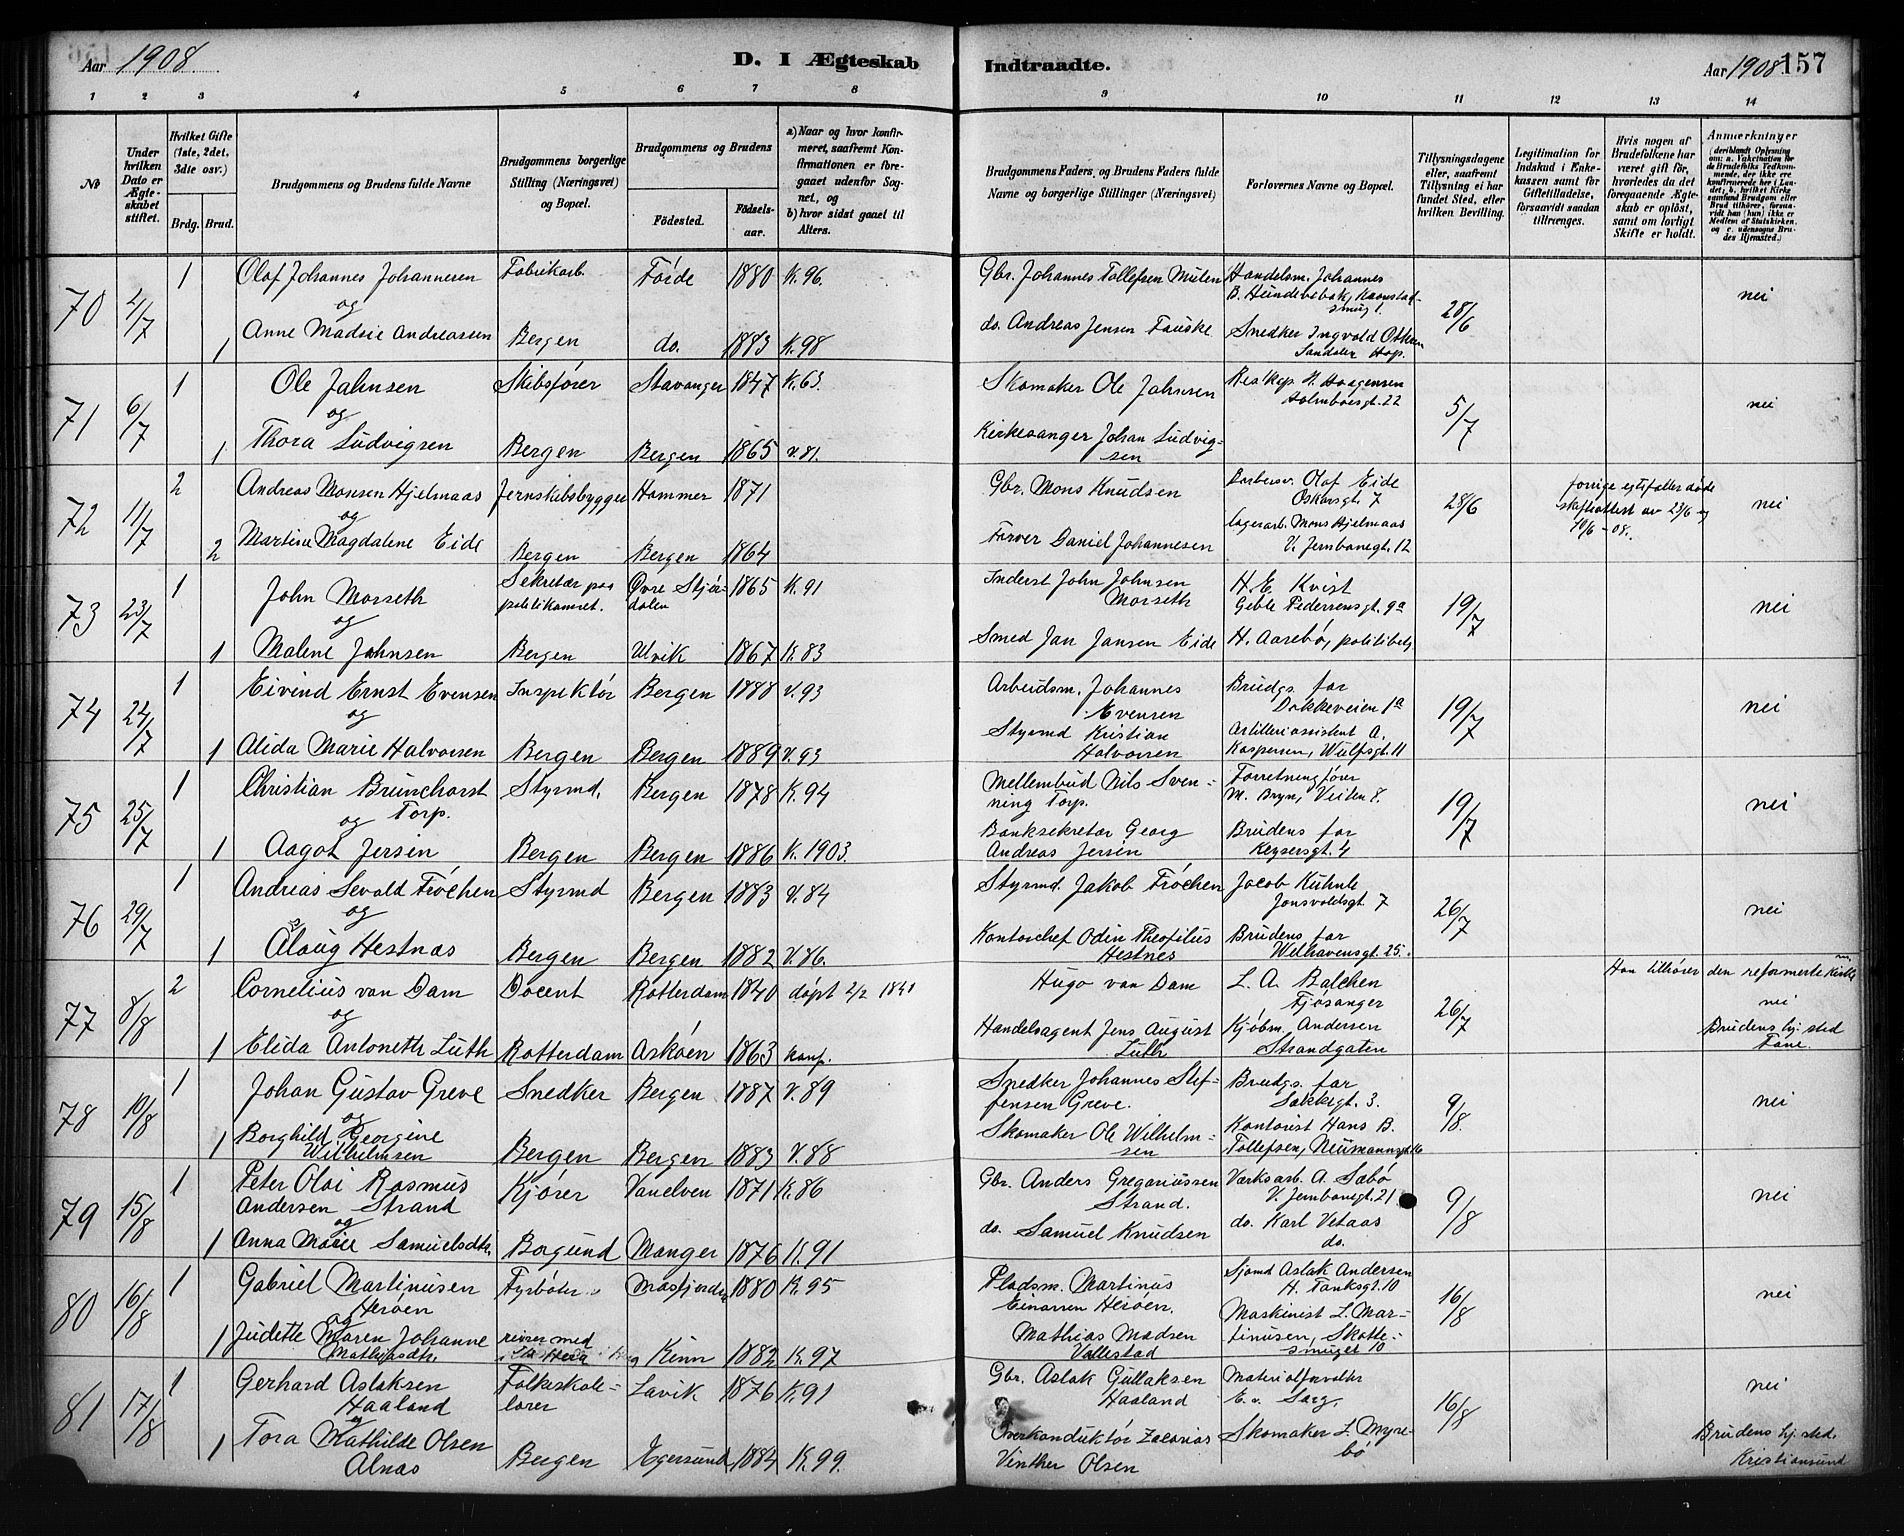 Aar 1908
D. I Ægteskab Indtraadte.
Aar 1908 157
1 2 3 4 5 6 7 8 9 10 11 12 13 14
No
Under hvilken Dato er Ægteskabet stiftet.
Hvilket Gifte (1ste, 2det, 3die osv.)
Brdg. Brud.
Brudgommens og Brudens fulde Navne
Brudgommens borgerlige Stilling (Næringsvei) og Bopæl.
Brudgommens og Brudens
Fødested. Fødselsaar.
a) Naar og hvor konfirmeret, saafremt Konfirmationen er foregaaet udenfor Sognet, og
b) hvor sidst gaaet til Alters.
Brudgommens Faders, og Brudens Faders fulde Navne og borgerlige Stillinger (Næringsvei)
Forlovernes Navne og Bopæl.
Tillysningsdagene eller, saafremt Tillysning ei har fundet Sted, efter hvilken Bevilling.
Legitimation for Indskud i Enkekassen samt for Giftetilladelse, forsaavidt saadan tiltrænges.
Hvis nogen af Brudefolkene har været gift før, hvorledes da det foregaaende Ægteskab er opløst, samt om lovligt Skifte er holdt.
Anmærkninger (deriblandt Oplysning om: a. Vakcination for de Brudefolks Vedkommende, der ikke ere konfirmerede her i Landet; b. hvilket Kirkesamfund Brudgom eller Brud tilhører, forsaavidt han (hun) ikke er Medlem af Statskirken, og c. udensogns Brudes Hjemsted.)
70 4/7 1 Olaf Johannes Johannesen Fabrikarb. Førde 1880 K. 96. Gbr. Johannes Tollefsen Mulen Handelsm. Johannes
B. smug 1. 28/6 nei
og
1 Anne Madsie Andreassen Bergen do. 1883 K. 98 do. Andreas Jensen Fauske Snedker Ingvald
Sandalen Hop.
71 6/7 1 Ole Jahnsen Skibsfører Stavanger 1847 K. 63. Skomaker Ole Jahnsen H. Haagensen
Holmboesgt. 22 5/7 nei
og
1 Thora Ludvigsen Bergen Bergen 1865 V. 81. Kirkesanger Johan Ludvigsen
72 11/7 2 Andreas Monsen Hjelmaas Jernskibsbygger Hammer 1871 Gbr. Mons Knudsen Barbersv. Olaf Eide
Oskarsgt. 7 28/6 forrige egtefæller døde
skifteattest av 23/6 og
10/6 - 08. nei
og
2 Martine Magdalene Eide Bergen Bergen 1864 Farver Daniel Johannesen Lagerarb. Mons Hjelmaas
V. Jernbanegt. 12
73 23/7 1 John Morseth Sekretær paa
politikamret. Øvre Stjørdalen 1865 K. 91 Inderst John Johnsen
Morseth H. E. Kvist
Geble Pederrensgt. 9a 19/7 nei
og
1 Malene Jahnsen Bergen Ulvik 1867 K. 83 Smed Jan Jansen Eide H. Aarebø, politibetj.
74 24/7 1 Eivind Ernst Evensen Inspektør Bergen 1888 V. 93 Arbeidsm. Johannes
Evensen Brudgs. far
Dokkeveien 1a 19/7 nei
og
1 Alida Marie Halvorsen Bergen Bergen 1889 V. 93 Styrmd Kristian
Halvorsen Artilleriassistent A.
Kaspersen, Wulfsgt. 11
75 25/7 1 Christian Brunchorst
Torp. Styrmd. Bergen 1878 K. 94 Mellembud Nils Svenning Torp. Forretningfører
M. Bryn, Veiten 8. 19/7 nei
og
1 Aagot Jersin Bergen Bergen 1886 K. 1903. Banksekretær Georg
Andreas Jersin Brudens far
Keysersgt. 4
76 29/7 1 Andreas Sevald Frøchen Styrmd Bergen 1883 V. 84 Styrmd. Jakob Frøchen Jacob Kuhnle
Jonsvoldsgt 7 26/7 nei
og
1 Aslaug Hestnæs Bergen Bergen 1882 V. 86. Kontorchef Odin Theofilus
Hestnes Brudens far
Welhavensgt. 25.
77 8/8 2 Cornelius van Dam Docent Rotterdam 1840 døpt 2/2 1841 Hugo van Dam L. A. Balchen
Fjøsanger 26/7 Han tilhører den reformerte kirke
nei
og
1 Elida Antoneth Luth Rotterdam Askøen 1863 konf. Handelsagent Jens August
Luth Kjøbm. Andersen
Strandgaten Brudens hj. sted
Fane.
78 10/8 1 Johan Gustav Greve Snedker Bergen 1887 V. 89 Snedker Johannes Steffensen Greve. Brudgs. far
Sekkegt. 3. 9/8. nei
og
1 Borghild Georgine
Wilhelmsen Bergen Bergen 1883 V. 88 Skomaker Ole Wilhelmsen Kontorist Hans B.
Tollefsen, Neumannsgt. 16
79 15/8 1 Peter Olai Rasmus
Andersen Strand Kjører Vanelven 1871 K. 86 Gbr. Anders Gregoriussen
Strand. Værksarb. A. Sæbø
V. Jernbanegt. 21 9/8 nei
og
1 Anna Marie Samuelsdtr. Borgund Manger 1876 K. 91 do. Samuel Knudsen do. Karl Vetaas
do.
80 16/8 1 Gabriel Martinusen
Herøen Fyrbøter Masfjorden 1880 K. 95 Pladsm. Martinus
Einarsen Herøen. Sjømd Aslak Andersen
H. Tanksgt. 10 16/8 nei
og
1 Judette Maren Johanne
Mathiasdtr. reiser med Kinn 1882 K. 97 Mathias Madsen
Vallestad Maskinist L. Martinusen, Skottesmuget 10
81 17/8 1 Gerhard Aslaksen
Haaland Folkeskolelærer Lavik 1876 K. 91 Gbr. Aslak Gullaksen
Haaland Materialforvalter
E. v. Sarg. 16/8 nei
og
1 Tora Mathilde Olsen
Alnæs Bergen Egersund 1884 K. 99. Overkonduktør Zacarias
Vinther Olsen Skomaker L. Myrebø Brudens hj. sted.
Kristiansund